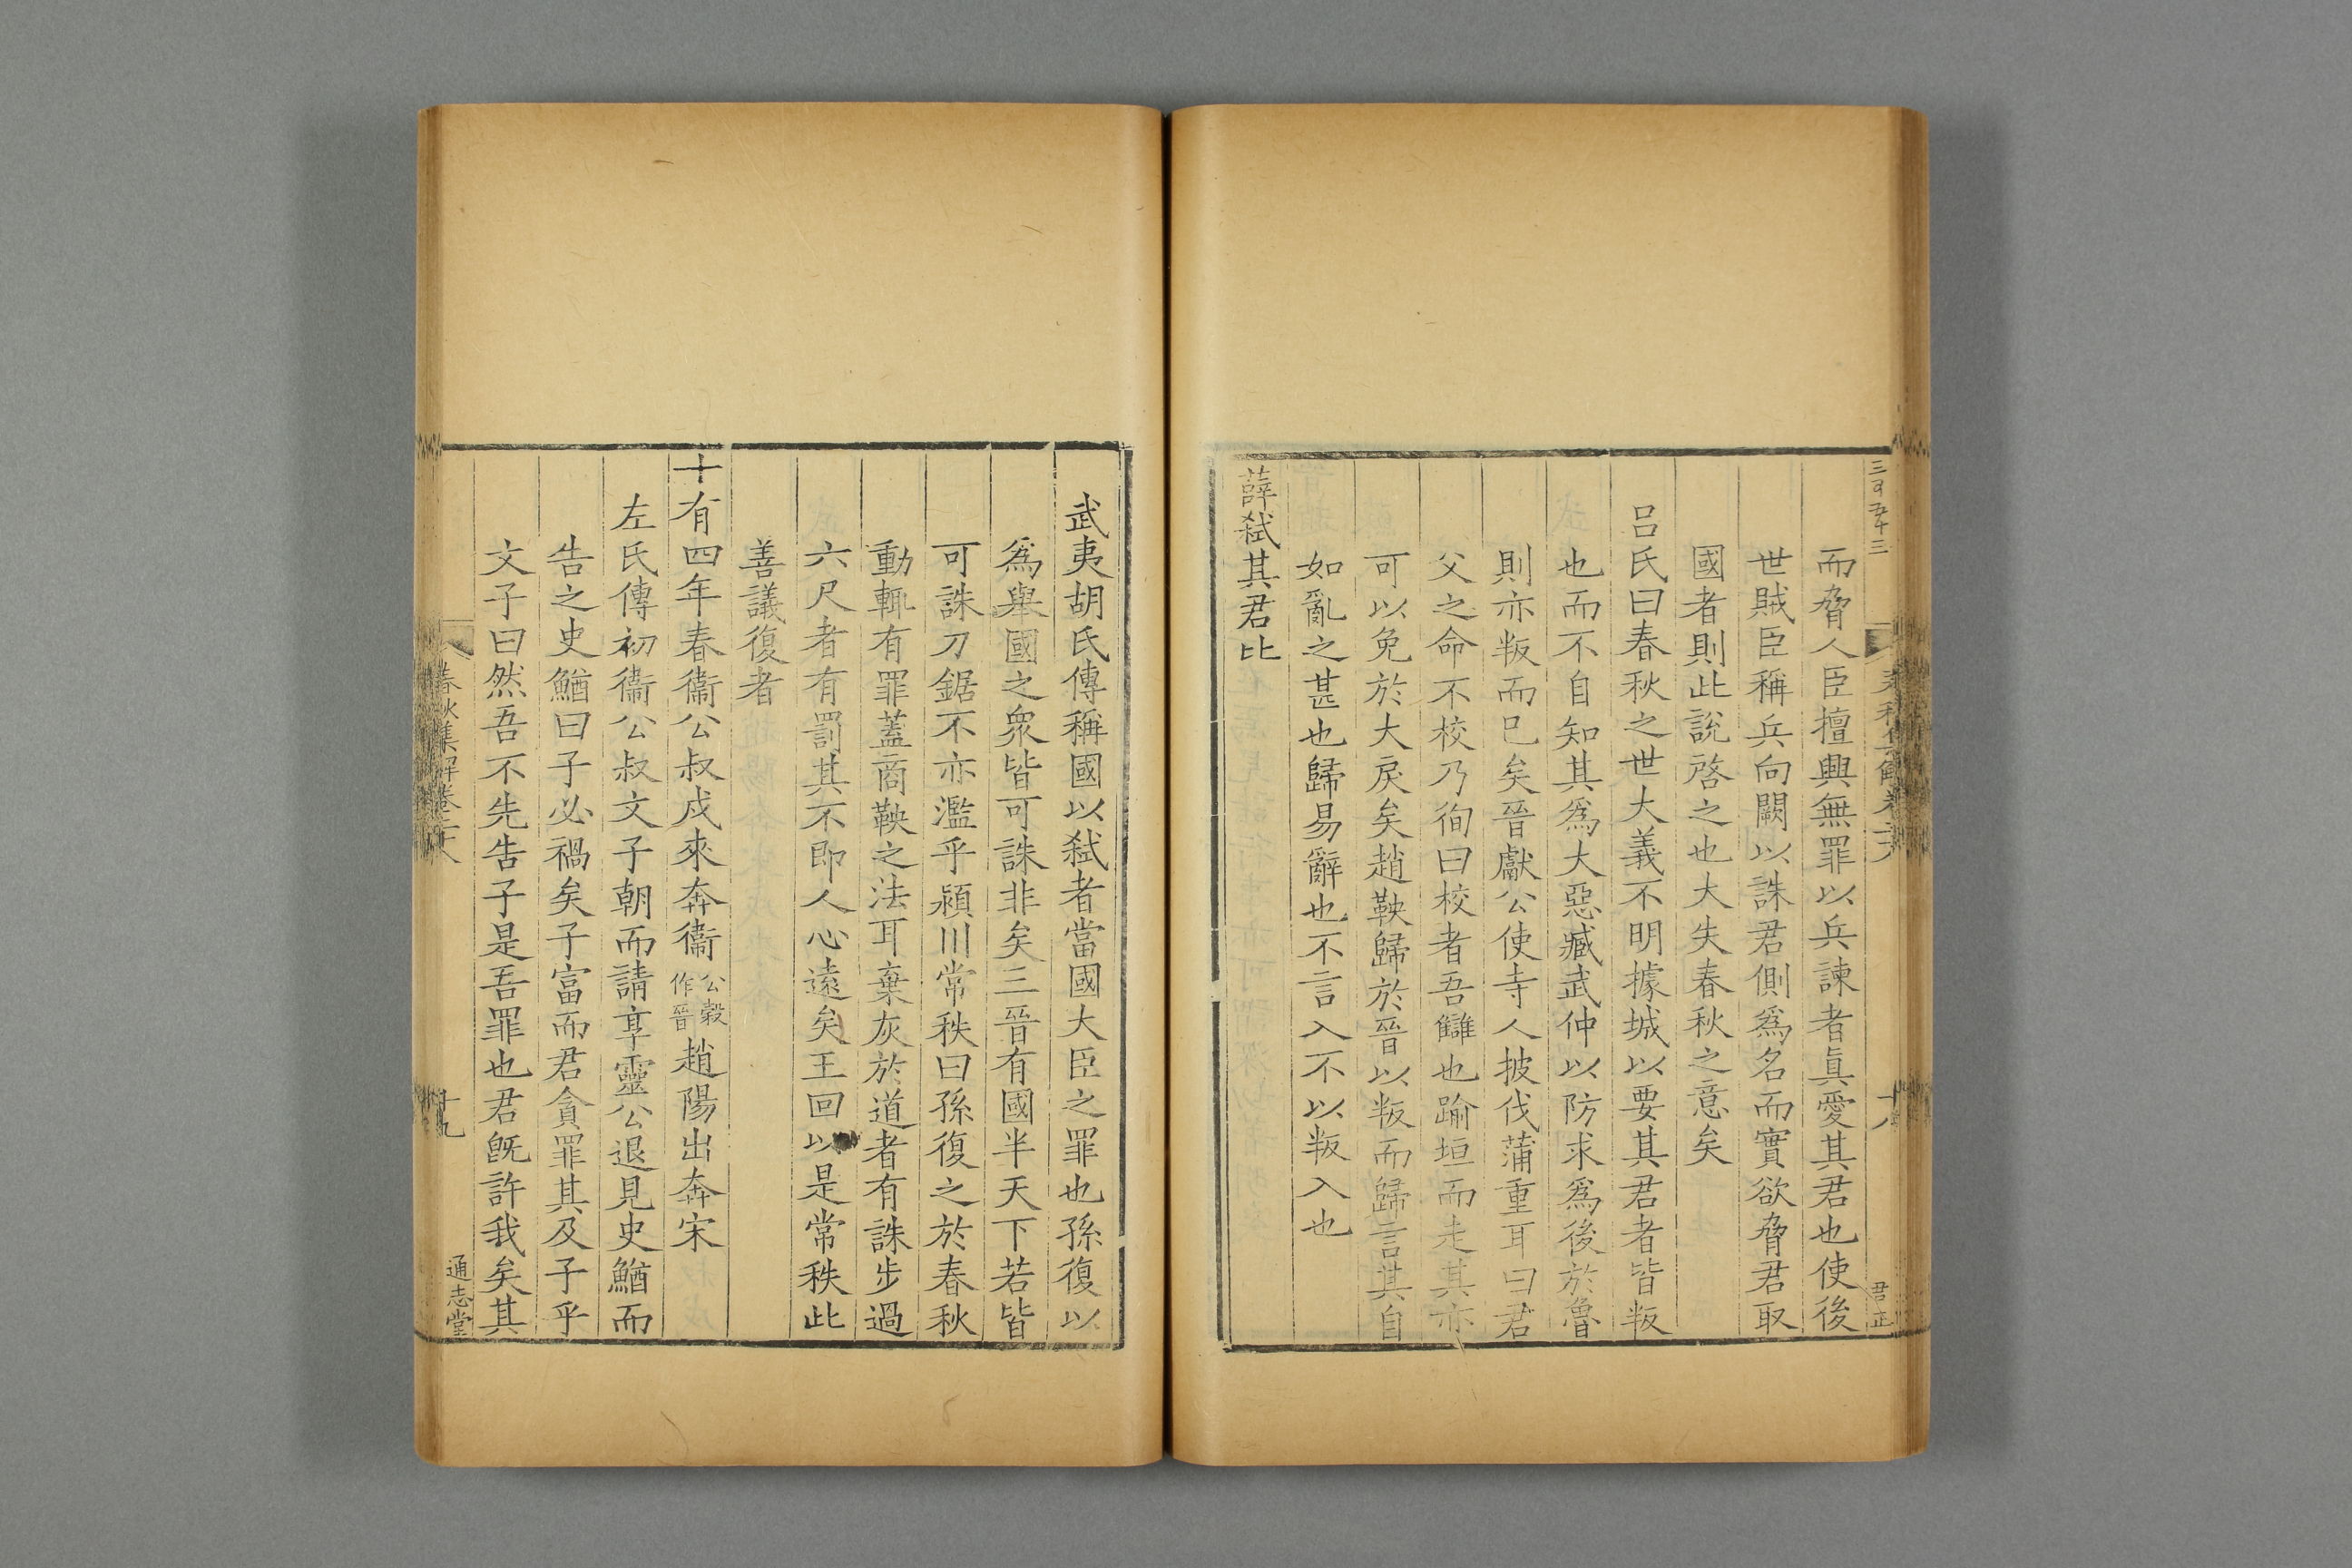 而脅人臣擅興無罪以兵諫者真愛其君也使後
世賊臣稱兵向闕以誅君側爲名而實欲脅君取
國者則此說啓之也大失春秋之意矣
呂氏曰春秋之世大義不明據城以要其君者皆叛
也而不自知其爲大惡臧武仲以防求爲後於魯
則亦叛而已矣晉獻公使寺人披伐蒲重耳曰君
父之命不校乃徇曰校者吾讎也踰垣而走其亦
可以免於大戾矣趙鞅歸於晉以叛而歸言其自
如亂之甚也歸易辭也不言入不以叛入也
薛弑其君比
十八
君正
武夷胡氏傳稱國以弑者當國大臣之罪也孫復以
爲舉國之衆皆可誅非矣三晉有國半天下若皆
可誅刀鋸不亦濫乎潁川常秩曰孫復之於春秋
動輒有罪蓋商鞅之法耳棄灰於道者有誅步過
六尺者有罰其不即人心遠矣王回以是常秩此
善議復者
十有四年春衞公叔戍來奔衞公穀作晉趙陽出奔宋
左氏傳初衞公叔文子朝而請享靈公退見史鰌而
告之史鰌曰子必禍矣子富而君貪罪其及子乎
文子曰然吾不先告子是吾罪也君旣許我矣其
春秋集解卷二十六
十九
通志堂